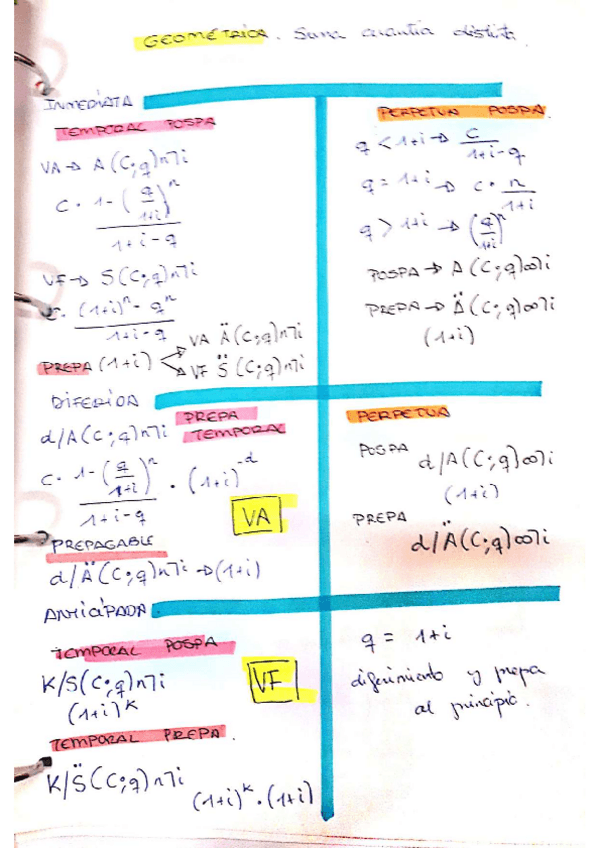 GEOMÉTRICA. Suma cuantía distinta.
INMEDIATA
TEMPORAL POSPA
VA → A(C;q)n˥i
C · 1-(q/1+i)^n
1+i-q
VF → S(C;q)n˥i
C · (1+i)^n - q^n
1+i-q
PREPA (1+i)
VA Ä(C;q)n˥i
VF S̈(C;q)n˥i
PERPETUA POSPA.
q < 1+i → C/1+i-q
q = 1+i → C · n/1+i
q > 1+i → (q/1+i)^n
POSPA → A(C;q)∞˥i
PREPA → Ä(C;q)∞˥i
(1+i)
DIFERIDA
PREPA
TEMPORAL
d/A(C;q)n˥i
C · 1-(q/1+i)^n · (1+i)^-d
1+i-q
VA
PREPAGABLE
d/Ä(C;q)n˥i → (1+i)
PERPETUA
POSPA d/A(C;q)∞˥i
(1+i)
PREPA
d/Ä(C;q)∞˥i
ANTICIPADA.
TEMPORAL POSPA
K/S(C;q)n˥i
(1+i)^K
VF
TEMPORAL PREPA.
K/S̈(C;q)n˥i
(1+i)^K · (1+i)
q = 1+i
diferimiento y prepa
al principio.